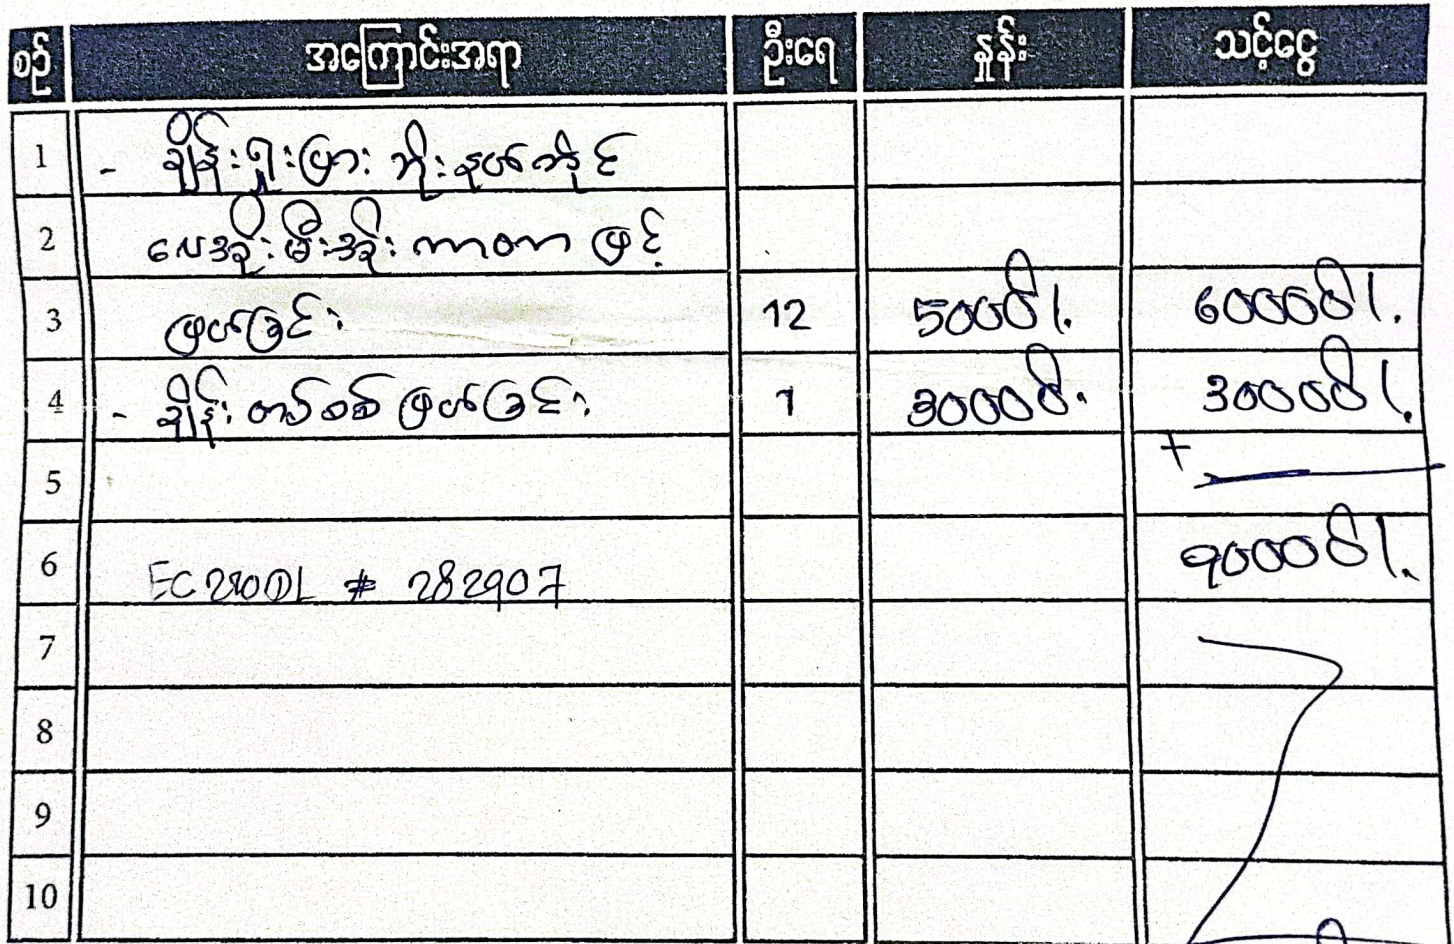 စဉ် အကြောင်းအရာ ဦးရေ နှုန်း သင့်ငွေ
1 - ချိန်းရှုးပြား ဘိုးနပ်တိုင်
2 လေအိုး မီးအိုး ကာတာ ဖြင့်
3 ဖြတ်ခြင်း 12 5000ိ/. 60000ိ/.
4 - ချိန်း တစ်စစ် ဖြတ်ခြင်း 1 30000ိ. 30000ိ/.
5 +
6 EC210DL # 282907 90000ိ/.
7
8
9
10